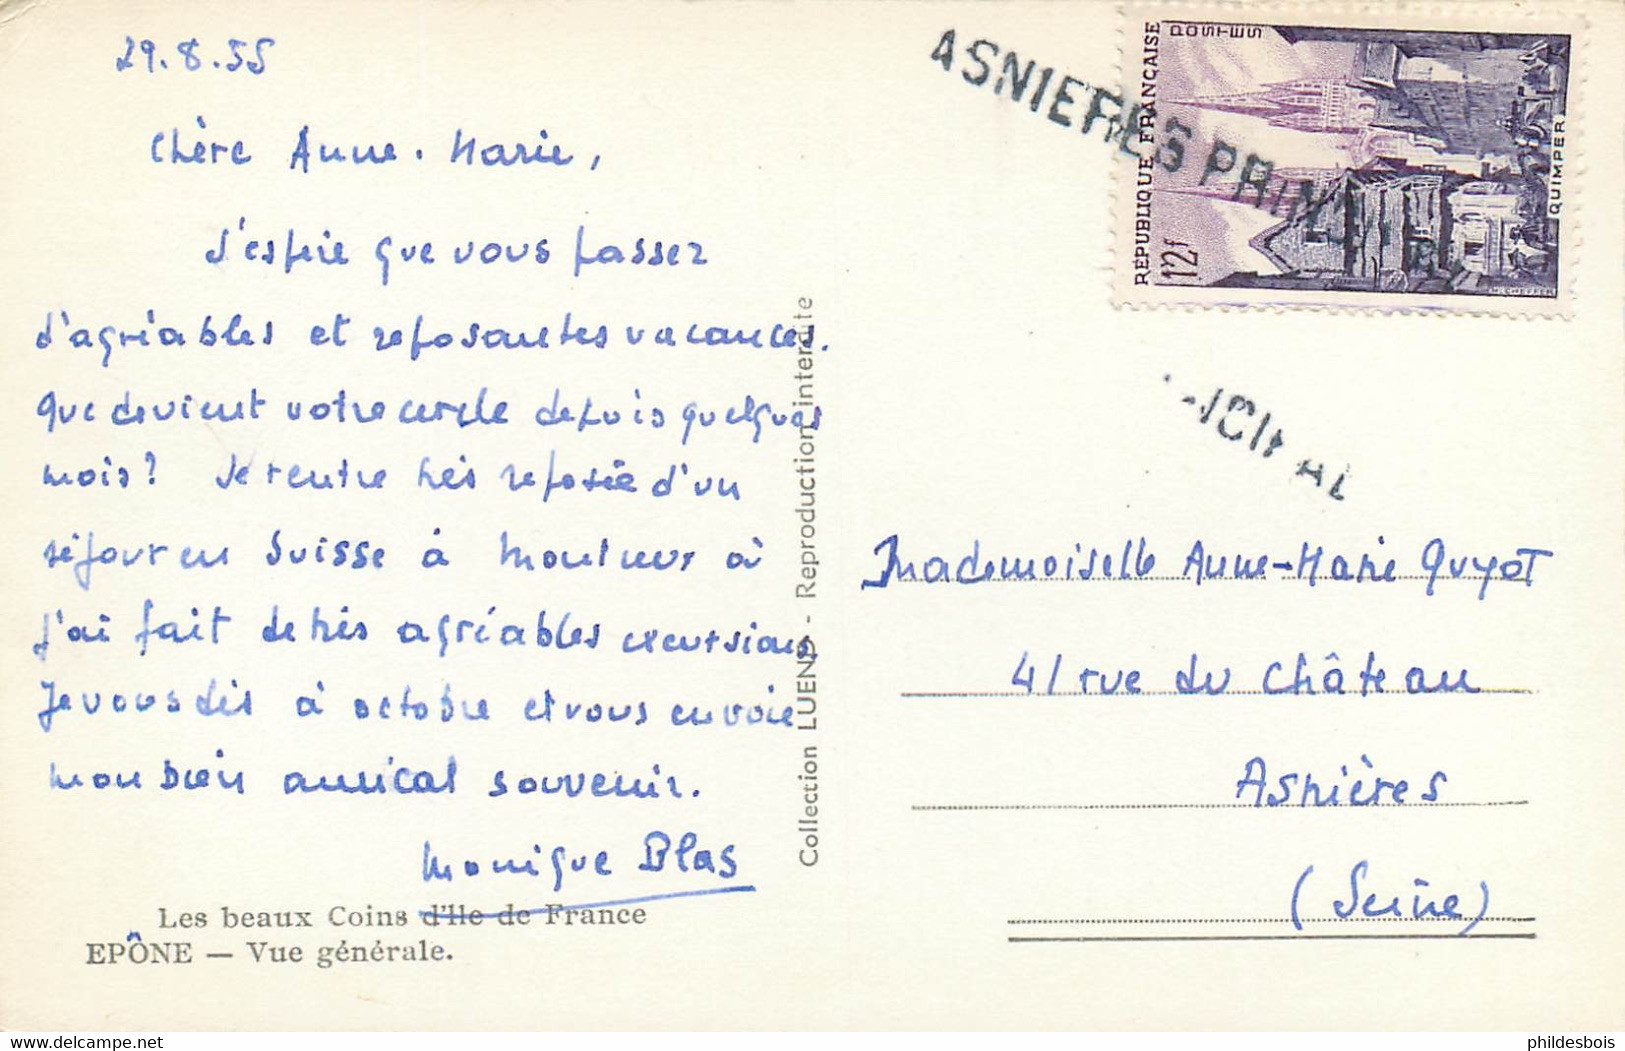 29.8.55
Chère Anne-Marie,
J'espère que vous passez
d'agréables et reposantes vacances.
Que devient votre cercle depuis quelques
mois? Je rentre très reposée d'un
séjour en Suisse à Montreux où
j'ai fait de très agréables excursions.
Je vous dis à octobre et vous envoie
mon bien amical souvenir.
Monique Blas
Les beaux Coins d'Ile de France
EPÔNE — Vue générale.
Collection LUEND - Reproduction interdite
ASNIERES PRIN
CIPAL
RÉPUBLIQUE FRANÇAISE
POSTES
12f
QUIMPER
Mademoiselle Anne-Marie Guyot
41 rue du Château
Asnières
(Seine)
phildesbois